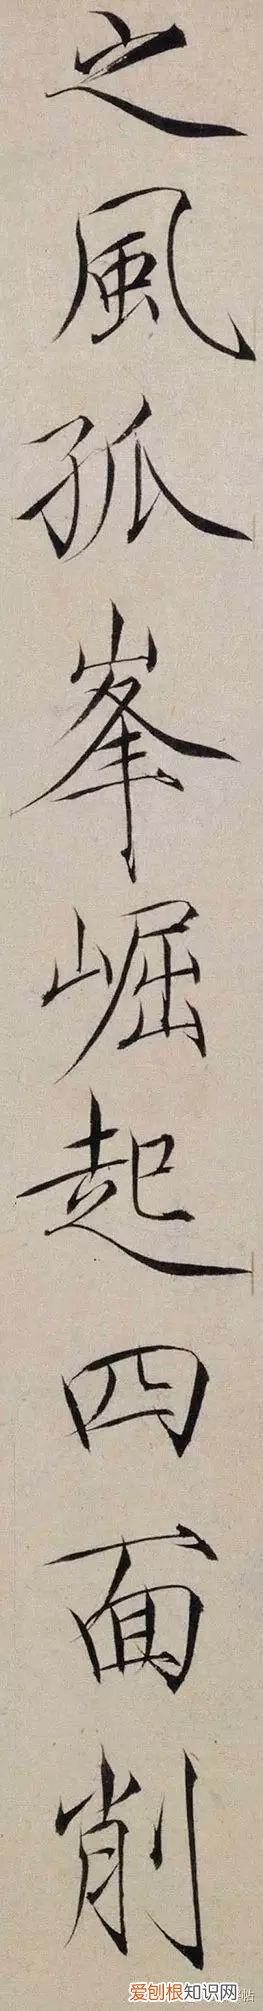 之風孤峯崛起四面削
帖
爱刨根知识网